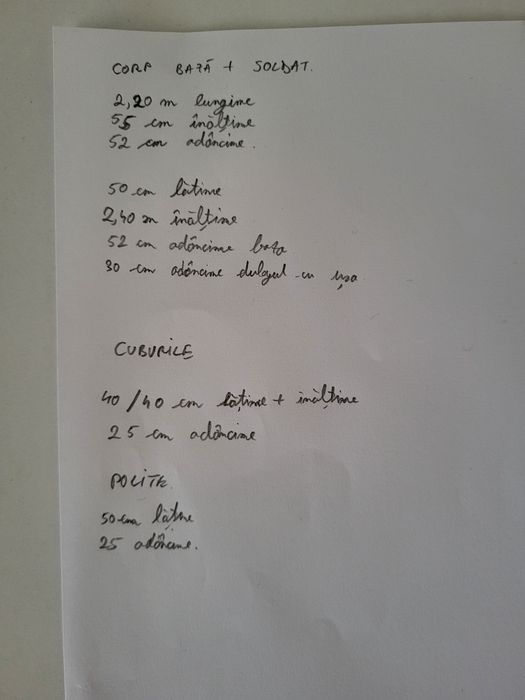 CORP BAZĂ + SOLDAT.
2,20 m lungime
55 cm înălțime
52 cm adâncime.
50 cm lățime
2,40 m înălțime
52 cm adâncime baza
30 cm adâncime dulapul cu ușa
CUBURILE
40/40 cm lățime + înălțime
25 cm adâncime
POLITE
50 cm lățime
25 adâncime.